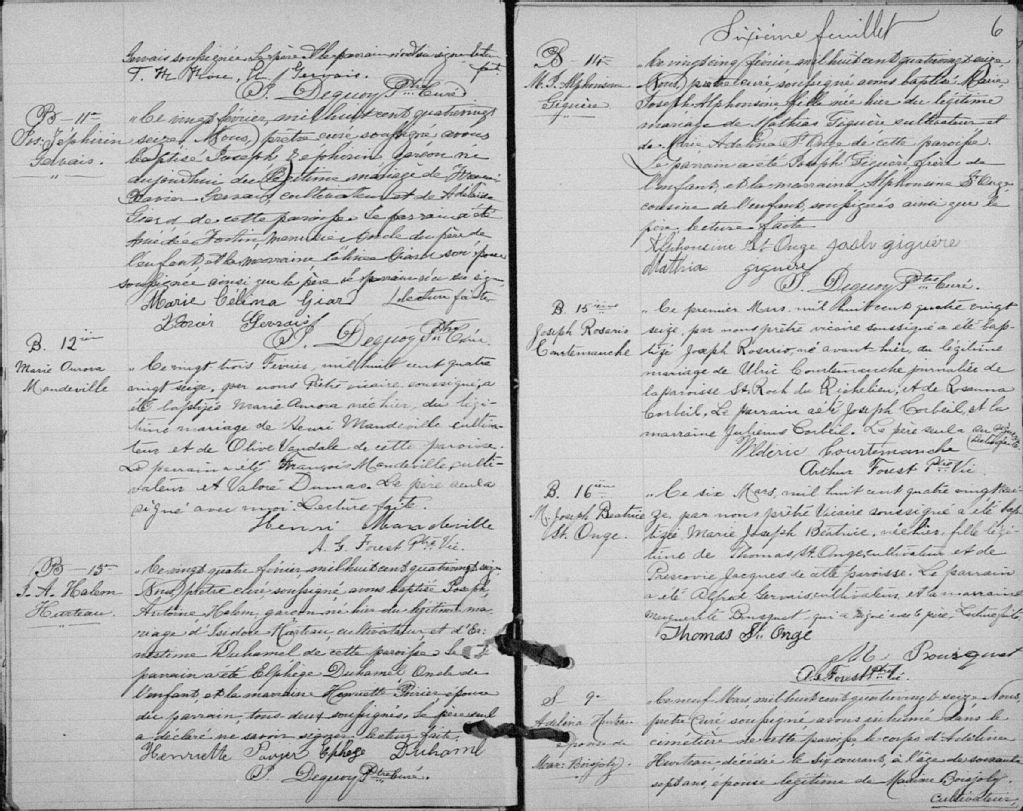 Gervais soussignés. Le père et le parrain n'ont su signer. Lecture
faite.
T. M. More, H. Gervais.
J. Dequoy Ptre Curé
B — 11e
Jos. Zéphirin
Gervais.
Ce vingt février, mil huit cent quatrevingt
seize, Nous, prêtre curé, soussigné avons
baptisé Joseph Zéphirin garçon né
aujourd'hui du légitime mariage de
Xavier Gervais cultivateur et de Adelaide
Giard de cette paroisse. Le parrain a été
Amédée Fortin, menuisier oncle du père de
l'enfant, et la marraine Célina Giard son épouse
soussignée ainsi que le père, le parrain n'a su signer
Marie Célina Giard Lecture faite
Xavier Gervais
J. Dequoy Ptre Curé.
B. 12ième
Marie Aurora
Mandeville
Ce vingt trois Février, mil huit cent quatre
vingt seize, par nous Prêtre vicaire, soussigné, a
été baptisée Marie Aurora née hier, du légi-
time mariage de Henri Mandeville cultiva-
teur et de Olive Vandale de cette paroisse.
Le parrain a été François Mandeville culti-
vateur et Valoré Dumas. Le père seul a
signé avec moi. Lecture faite.
Henri Mandeville
A. G. Forest Ptre Vic.
B — 13e
J. A. Halem
Hurteau.
Ce vingt quatre février, mil huit cent quatrevingt seize
Nous, prêtre curé, soussigné avons baptisé Joseph
Antoine Halem, garçon né hier du légitime ma-
riage d'Isidore Hurteau, cultivateur et d'Er-
nestine Duhamel de cette paroisse. Le
parrain a été Elphège Duhamel Oncle de
l'enfant, et la marraine Henriette Poirier épouse
du parrain, tous deux soussignés. Le père seul
a déclaré ne savoir signer. Lecture faite.
Henriette Poirier Ephege Duhamel
J. Dequoy Ptre Curé.
Sixième feuillet
6
B 14e
M. J. Alphonsine
Giguère
Ce vingt cinq février mil huit cent quatrevingt seize
Nous, prêtre curé, soussigné avons baptisé Marie
Joseph Alphonsine fille née hier du légitime
mariage de Mathias Giguère cultivateur et
de Adelina St. Onge de cette paroisse.
Le parrain a été Joseph Giguère frère de
l'enfant, et la marraine Alphonsine St. Onge
cousine de l'enfant, soussignés ainsi que le
père, lecture faite
Alphonsine St Onge Joseph giguère
Mathia giguère
J. Dequoy Ptre Curé.
B. 15ième
Joseph Rosario
Courtemanche
Ce premier Mars, mil huit cent quatre vingt
seize, par nous prêtre vicaire soussigné a été bap-
tisé Joseph Rosario, né avant-hier, du légitime
mariage de Ulric Courtemanche journalier de
la paroisse St. Roch du Richelieu, et de Rosanna
Corbeil. Le parrain a été Joseph Corbeil, et la
marraine Julienne Corbeil. Le père seul a su signer
Lecture faite
Médéric Courtemanche
Arthur Forest Ptre Vic.
B. 16ième
M. Joseph Béatrice
St. Onge.
Ce six Mars, mil huit cent quatre vingt sei-
ze, par nous prêtre Vicaire soussigné a été bap-
tisée Marie Joseph Béatrice, née hier, fille légi-
time de Thomas St. Onge, cultivateur et de
Jacques de cette paroisse. Le parrain
a été Alfred Gervais cultivateur, et la marraine
Marguerite Bousquet qui a signé avec le père, Lecture faite.
Thomas St. Onge
M. Bousquet
A. G. Forest Ptre Vic.
S 9e
Adelina Hurteau
épouse de
Mar: Boisjoly
Le neuf Mars, mil huit cent quatrevingt seize, Nous,
prêtre Curé soussigné avons inhumé dans le
cimetière de cette paroisse, le corps d'Adelina
Hurteau décédée le six courant, à l'âge de soixante
sept ans, épouse légitime de Boisjoly
cultivateur